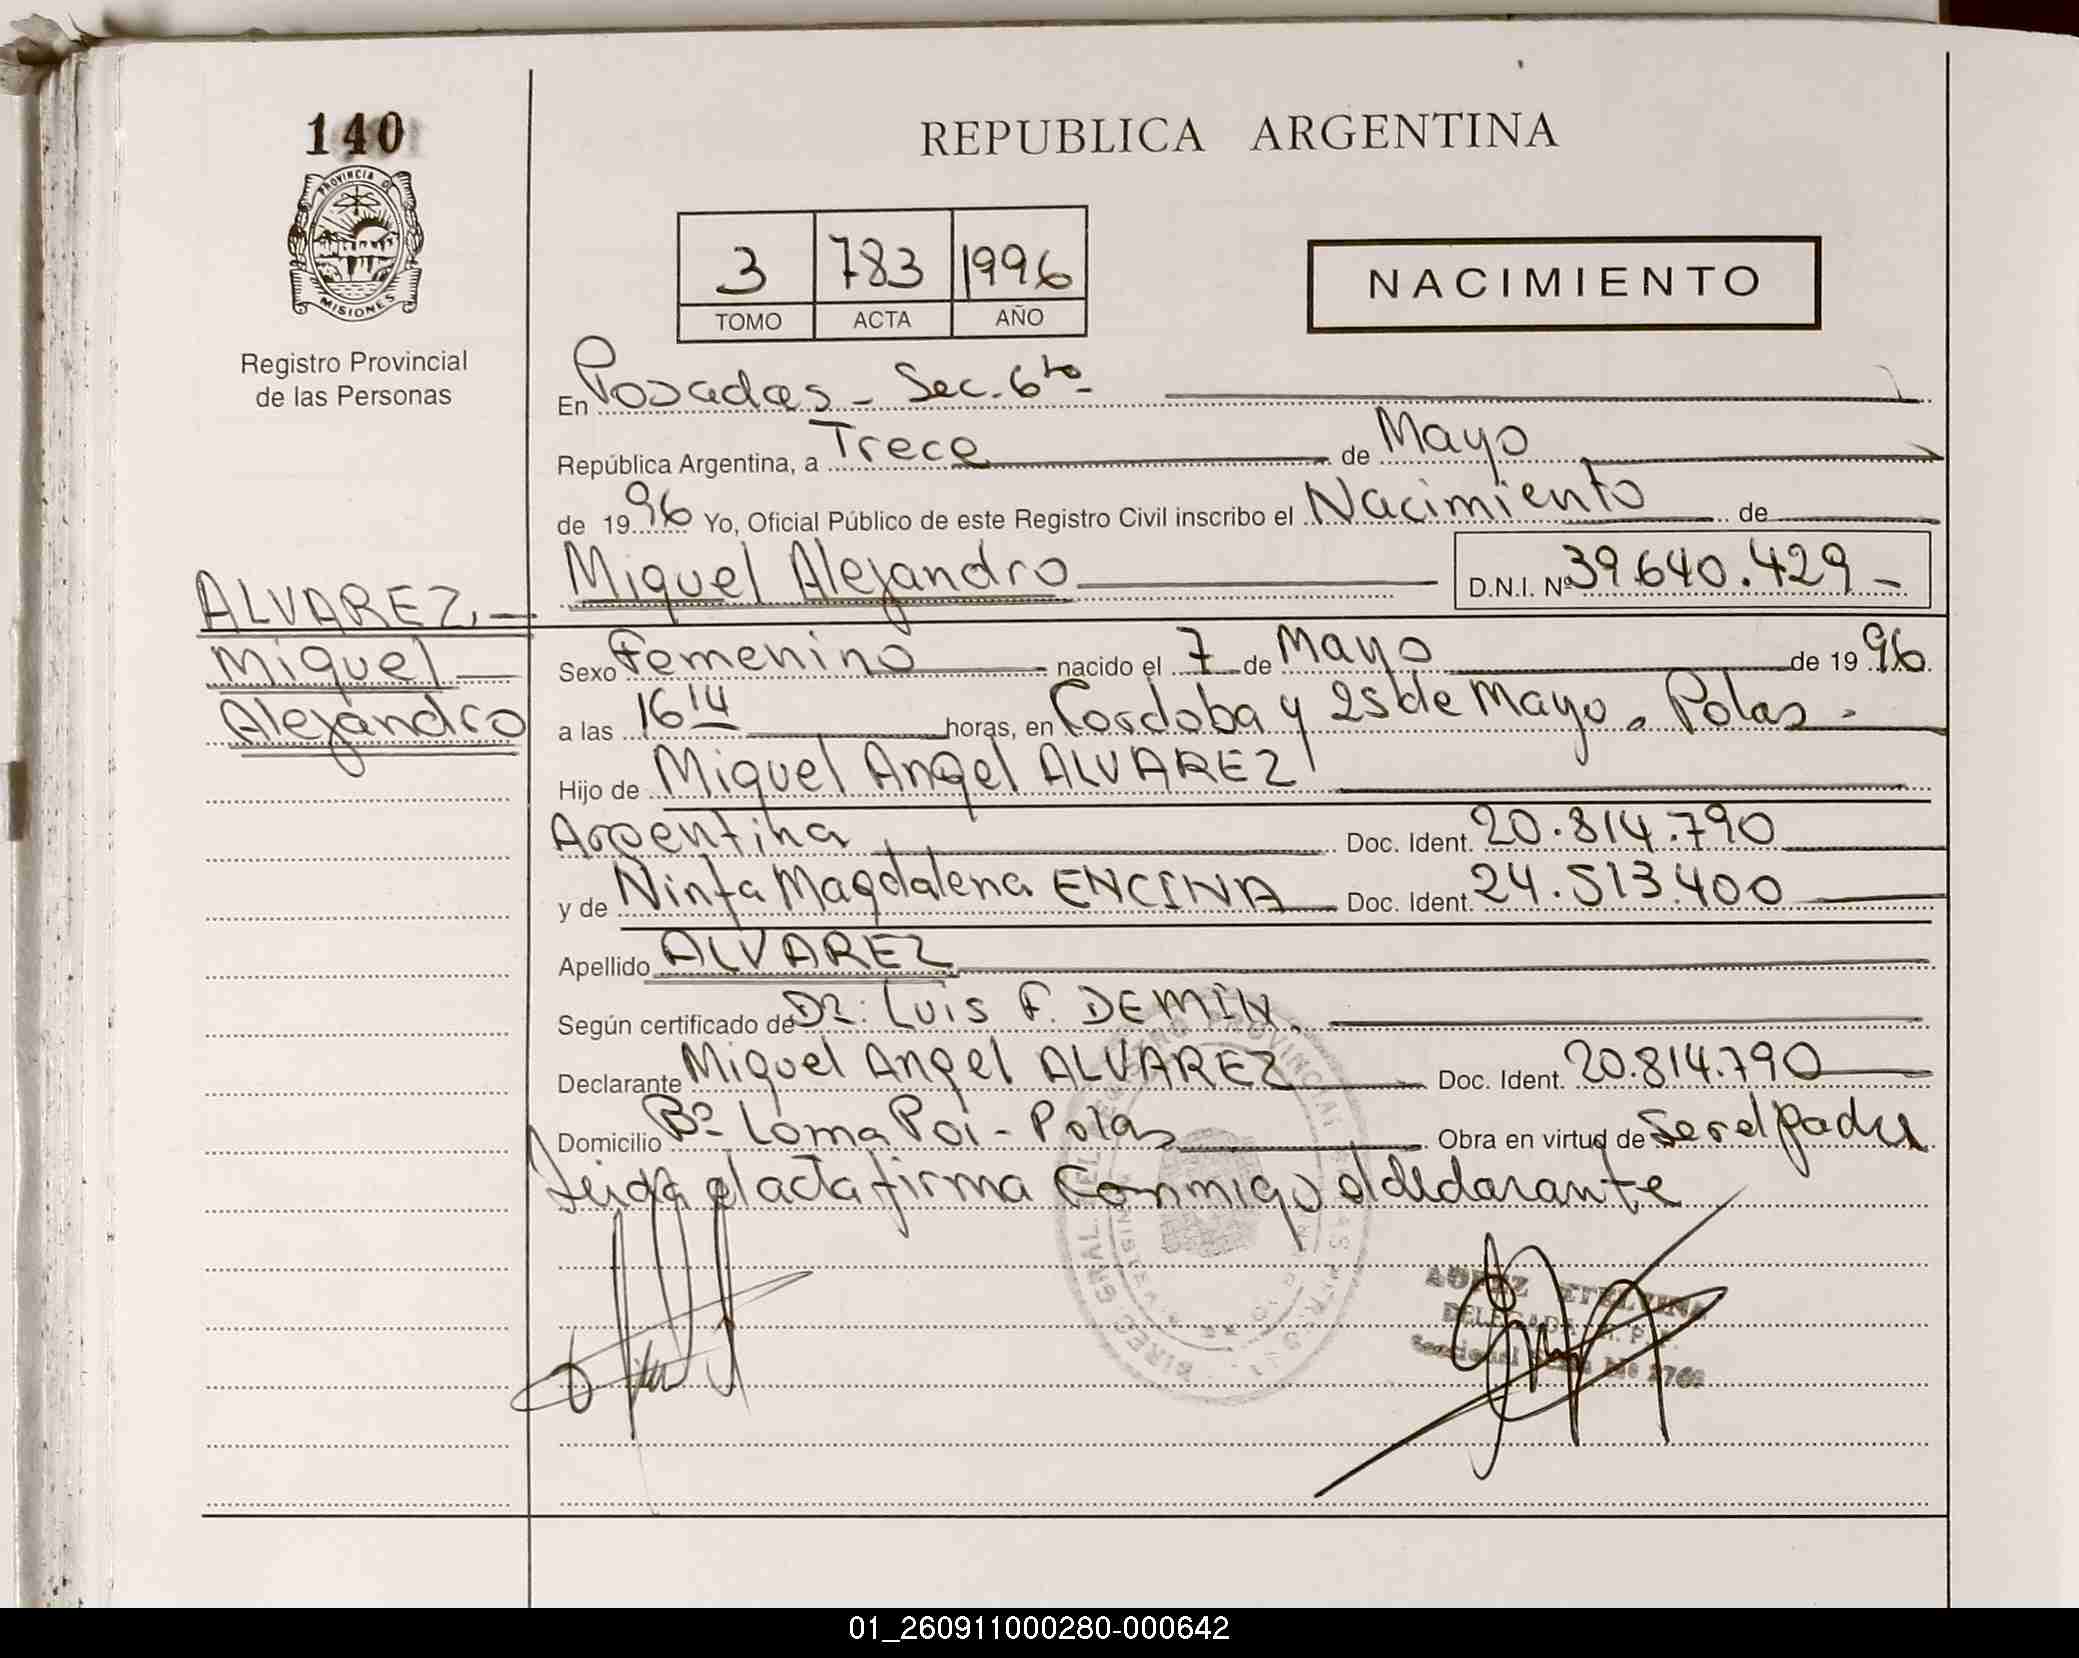 140
PROVINCIA D
MISIONES
Registro Provincial
de las Personas
REPUBLICA ARGENTINA
3 783 1996
TOMO ACTA AÑO
NACIMIENTO
En Posadas - Sec. 6ta -
República Argentina, a Trece de Mayo
de 1996 Yo, Oficial Público de este Registro Civil inscribo el Nacimiento de
Miguel Alejandro D.N.I. Nº 39.640.429 -
ALVAREZ, -
Miguel
Alejandro
Sexo Femenino nacido el 7 de Mayo de 1996.
a las 16 14 horas, en Cordoba y 25 de Mayo - Pdas -
Hijo de Miguel Angel ALVAREZ
Argentina Doc. Ident. 20.814.790
y de Ninfa Magdalena ENCINA Doc. Ident. 24.513.400
Apellido ALVAREZ
Según certificado de Dr: Luis F. DEMIN.
Declarante Miguel Angel ALVAREZ Doc. Ident. 20.814.790
Domicilio Bº Loma Poi - Pdas Obra en virtud de Ser el padre
Leida el acta firma Conmigo el declarante
ETELVINA
DELEGADA R. P.
Seccional 2762
01_260911000280-000642